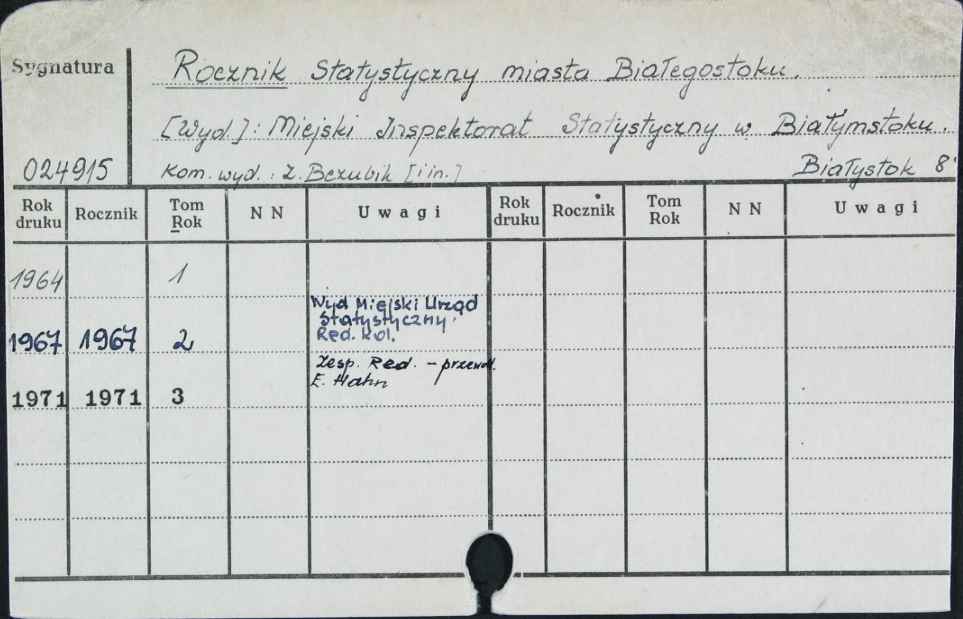 Sygnatura
Rocznik Statystyczny miasta Białegostoku.
[Wyd.]: Miejski Inspektorat Statystyczny w Białymstoku.
024915 Kom. wyd.: Z. Bezubik [i in.] Białystok 8°
Rok druku Rocznik Tom Rok N N Uwagi Rok druku Rocznik Tom Rok N N Uwagi
1964 1
Wyd Miejski Urząd
Statystyczny.
1967 1967 2 Red. kol.
Zesp. Red. – przewod.
E. Hahn
1971 1971 3